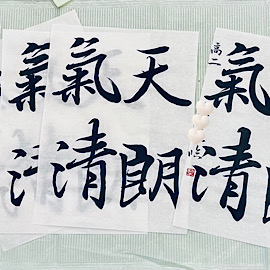 氣清
高二
天朗
氣清
氣